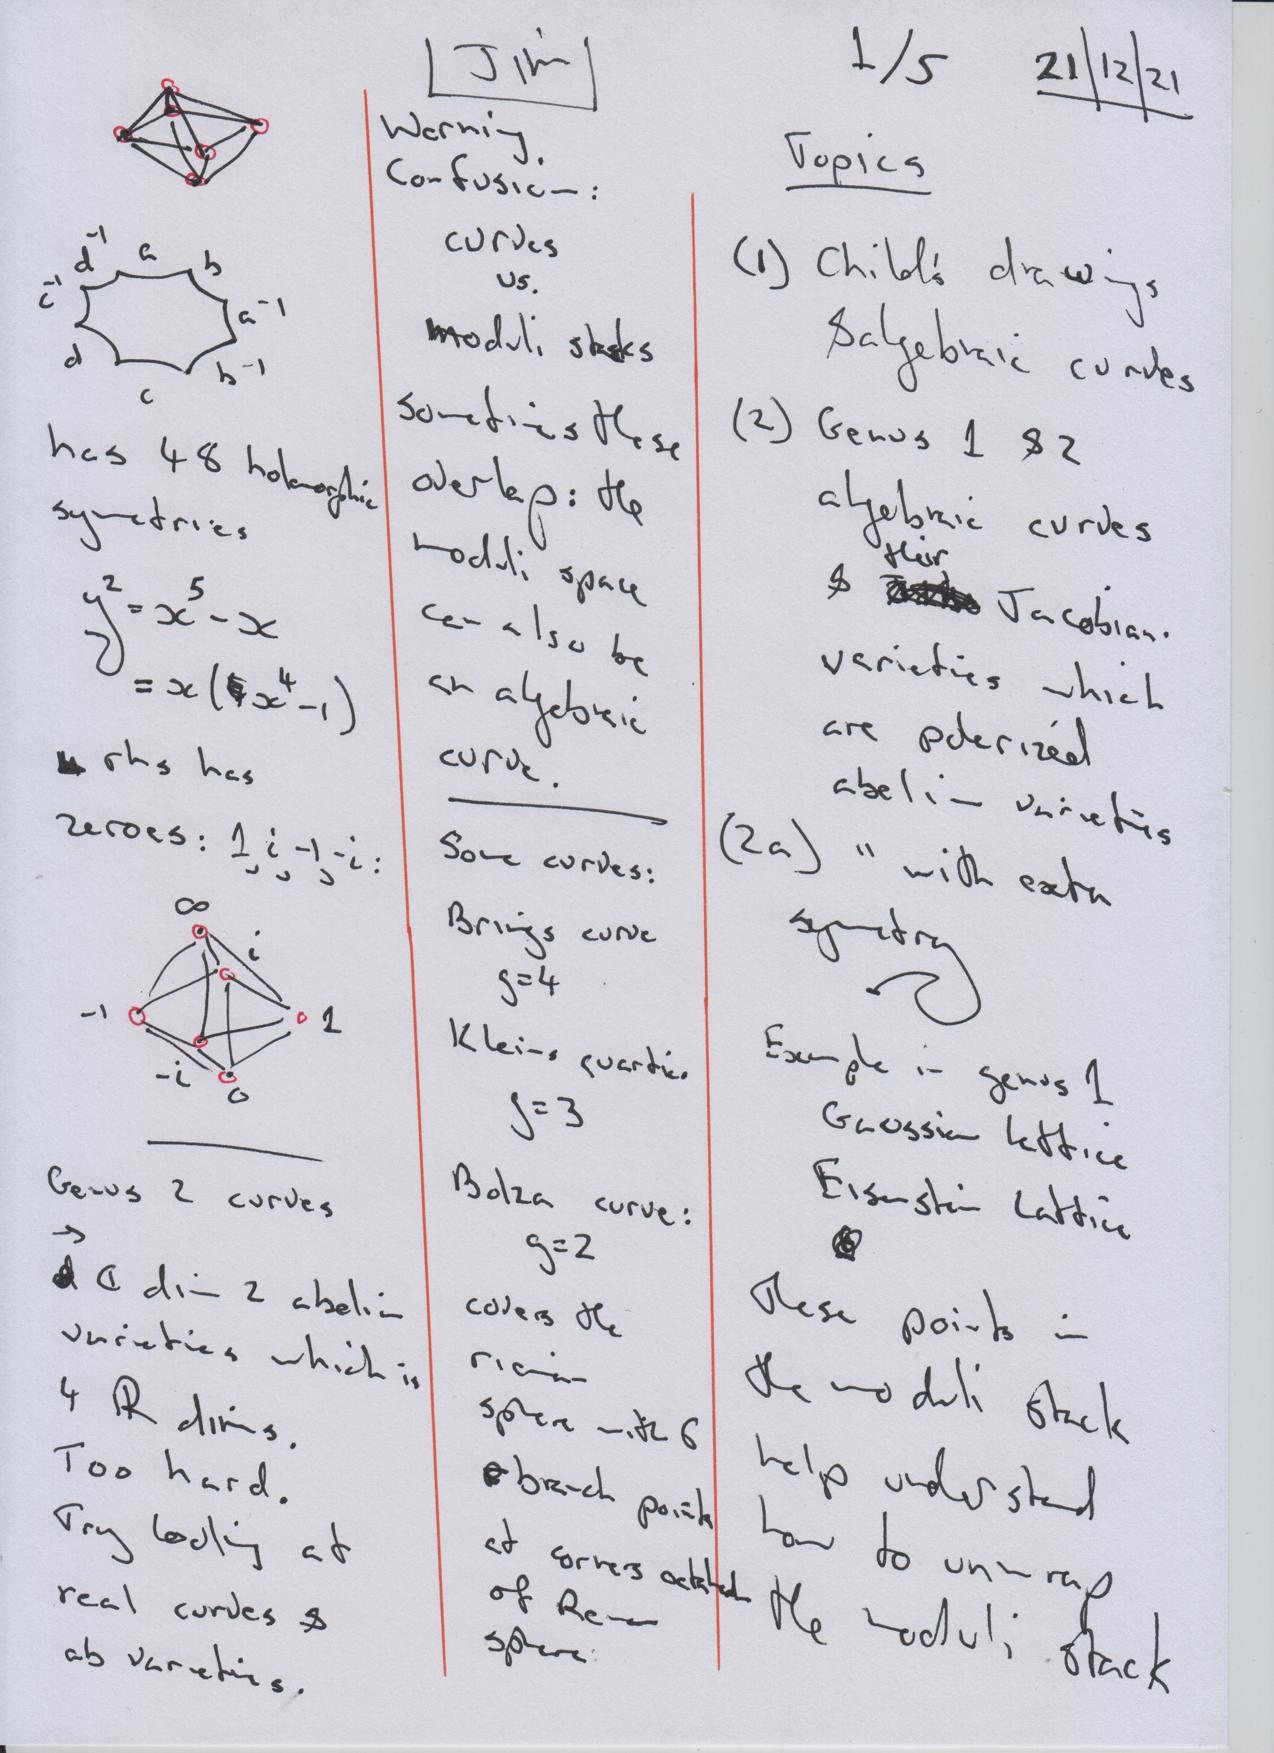 Jim
1/5
21/12/21
d⁻¹ a b
c⁻¹ a⁻¹
d b⁻¹
c
has 48 holomorphic
symetries
y² = x⁵ - x
= x(x⁴-1)
rhs has
zeroes: 1, i, -1, -i:
∞
i
-1 1
-i
0
Genus 2 curves
→
ℂ dim 2 abelian
varieties which is
4 ℝ dims.
Too hard.
Try looking at
real curves &
ab varieties.
Warning.
Confusion:
curves
vs.
moduli stacks
Sometimes these
overlap: the
moduli space
can also be
an algebraic
curve.
Some curves:
Brings curve
g=4
Kleins quartic.
g=3
Bolza curve:
g=2
covers the
sphere with 6
branch points
at corners
of
sphere.
Topics
(1) Child's drawings
& algebraic curves
(2) Genus 1 & 2
algebraic curves
& their Jacobian.
varieties which
are polerized
abelian varieties
(2a) " with extra
symetry
Example in genus 1
Gaussian lattice
Eisenstein Lattice
These points in
the moduli stack
help understand
how to unwrap
the moduli stack